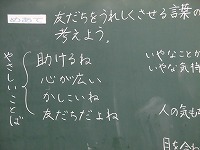 めあて
友だちをうれしくさせる言葉の
考えよう。
やさしいことば
助けるね
心が広い
かしこいね
友だちだよね
いやなことが
いやな気持
人の気も
目を合わ